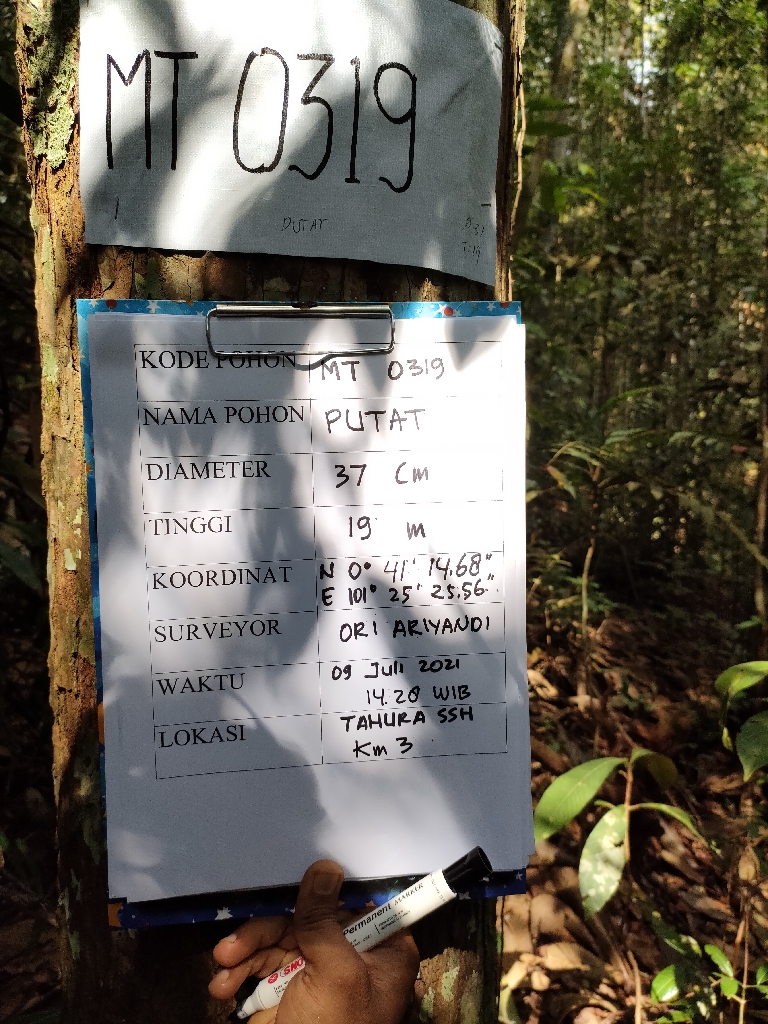 MT 0319
PUTAT
KODE POHON MT 0319
NAMA POHON PUTAT
DIAMETER 37 Cm
TINGGI 19 m
KOORDINAT N 0° 41' 14.68"
E 101° 25' 25.56"
SURVEYOR ORI ARIYANDI
WAKTU 09 Juli 2021
14.20 WIB
LOKASI TAHURA SSH
Km 3
Permanent MARKER